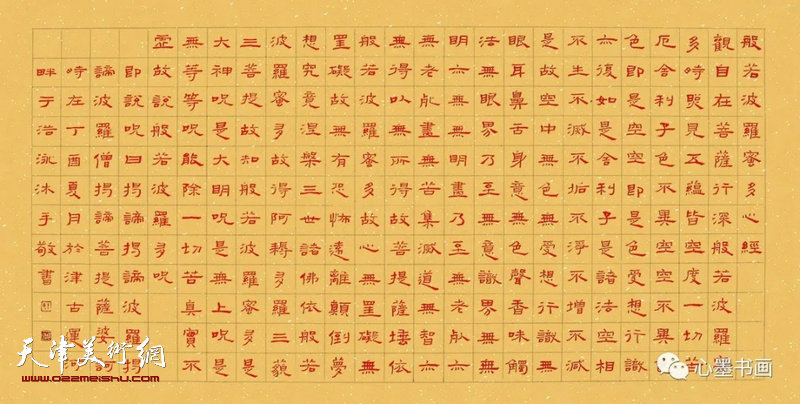 般若波羅蜜多心經
觀自在菩薩行深般若波羅蜜
多時照見五蘊皆空度一切苦
厄舍利子色不異空空不異
色即是空空即是色受想行識
亦復如是舍利子是諸法空相
不生不滅不垢不淨不增不減
是故空中無色無受想行識無
眼耳鼻舌身意無色聲香味觸
法無眼界乃至無意識界無無
明亦無無明盡乃至無老死亦
無老死盡無苦集滅道無智亦
無得以無所得故菩提薩埵依
般若波羅蜜多故心無罣礙無
罣礙故無有恐怖遠離顛倒夢
想究竟涅槃三世諸佛依般若
波羅蜜多故得阿耨多羅三藐
三菩提故知般若波羅蜜多是
大神呪是大明呪是無上呪是
無等等呪能除一切苦真實不
虛故說般若波羅蜜多呪
即說呪曰揭諦揭諦波羅揭
諦波羅僧揭諦菩提薩婆訶
時在丁酉夏月於津古運河
畔于浩泳沐手敬書
天津美術網
www.022meishu.com
心墨书画